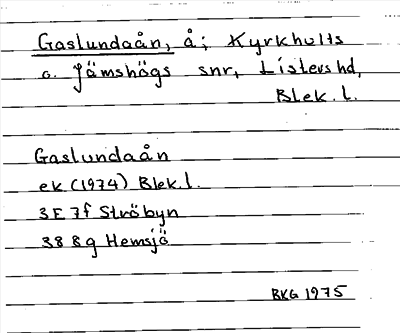 Gaslundaån, å; Kyrkhults
o. Jämshögs snr, Listers hd,
Blek. l.
Gaslundaån
ek (1974) Blek. l.
3E 7f Ströbyn
3E 8g Hemsjö
BKG 1975